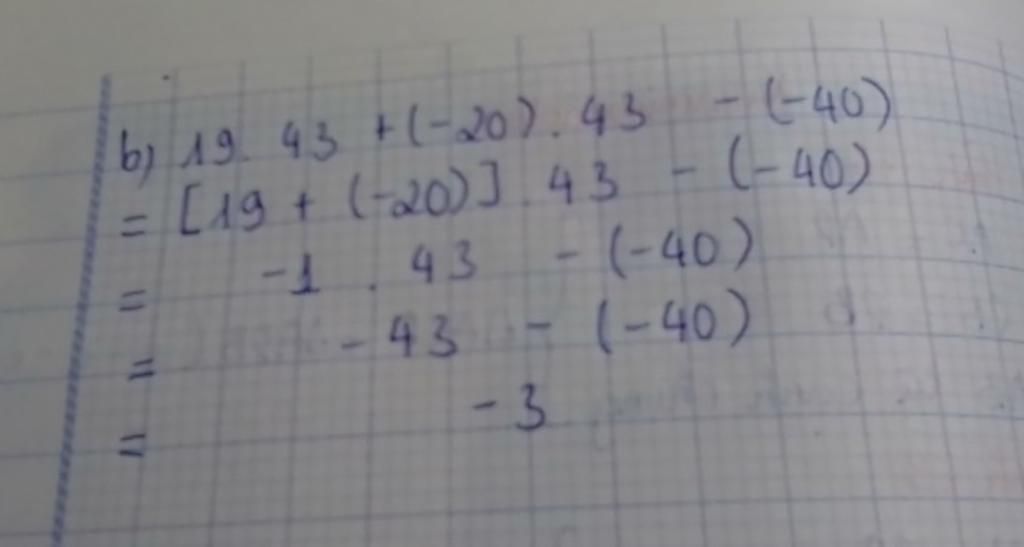 b) 19. 43 + (-20) . 43 - (-40)
= [19 + (-20)] . 43 - (-40)
= -1 . 43 - (-40)
= - 43 - (-40)
= - 3